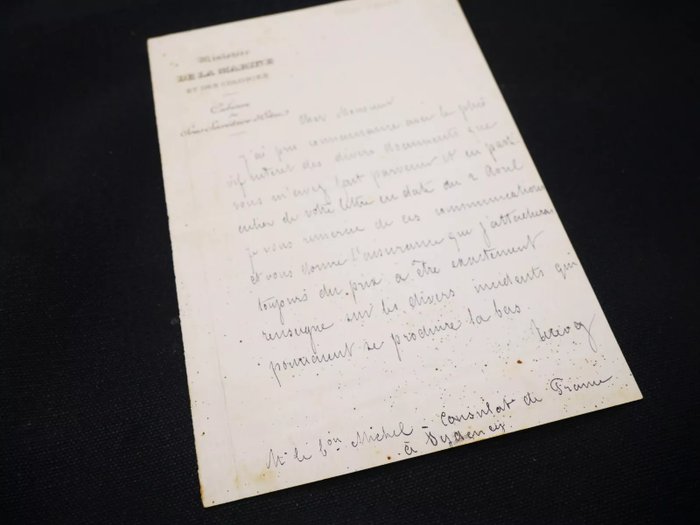 Ministère
DE LA MARINE
ET DES COLONIES
Cabinet
du
Sous Secrétaire d'Etat
Cher Monsieur
J'ai pris connaissance avec le plus
vif intérêt des divers documents que
vous m'avez fait parvenir et en parti
culier de votre lettre en date du 2 Avril
je vous remercie de ces communications
et vous donne l'assurance que j'attacherai
toujours du prix à être exactement
renseigné sur les divers incidents qui
pourraient se produire là bas.
Mr le bon Michel - Consulat de France
à Sydney